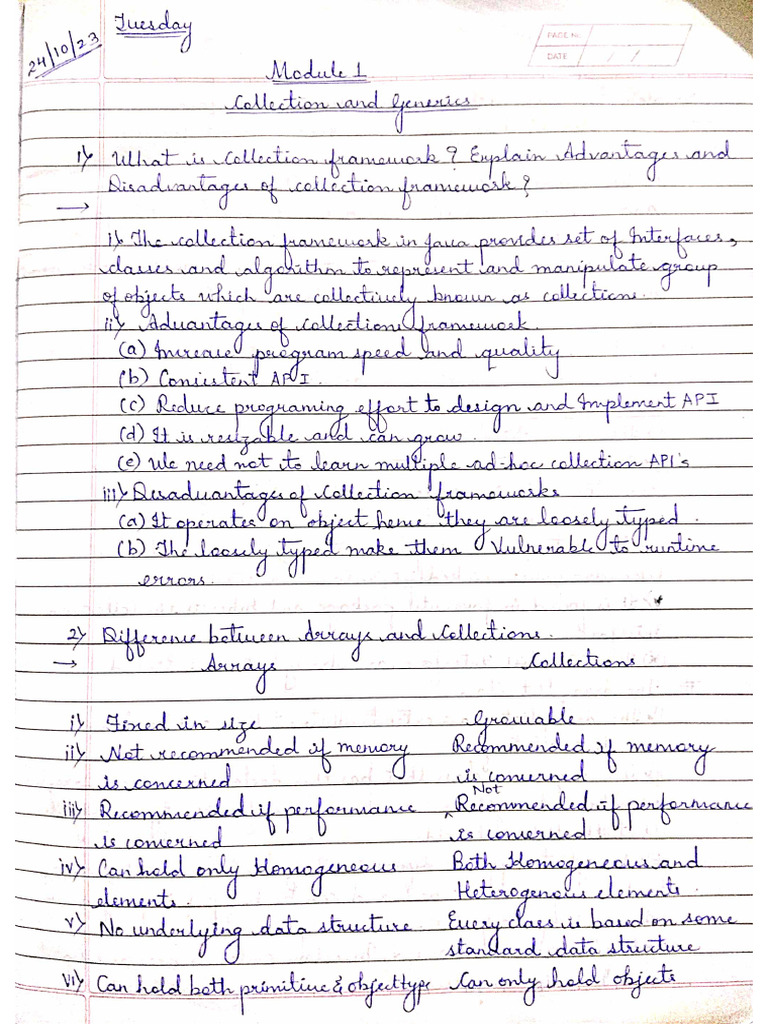 Tuesday
24/10/23
PAGE No.
DATE / /
Module 1
Collection and Generics
1) What is Collection framework? Explain Advantages and
Disadvantages of collection framework?
→
i) The collection framework in java provides set of Interfaces,
classes and algorithm to represent and manipulate group
of objects which are collectively known as collections.
ii) Advantages of collections framework.
(a) Increase program speed and quality
(b) Consistent API.
(c) Reduce programing effort to design and Implement API
(d) It is resizable and can grow.
(e) We need not to learn multiple ad-hoc collection API's
iii) Desadvantages of Collection frameworks
(a) It operates on object hence they are loosely typed.
(b) The loosely typed make them Vulnerable to runtime
errors.
2) Difference between Arrays and Collections.
→ Arrays Collections
i) Fixed in size Growable
ii) Not recommended if memory Recommended if memory
is concerned is concerned
iii) Recommended if performance Not Recommended if performance
is concerned is concerned.
iv) Can hold only Homogeneous Both Homogeneous and
elements. Heterogenous elements.
v) No underlying data structure. Every class is based on some
standard data structure
vi) Can hold both primitive & object type Can only hold objects